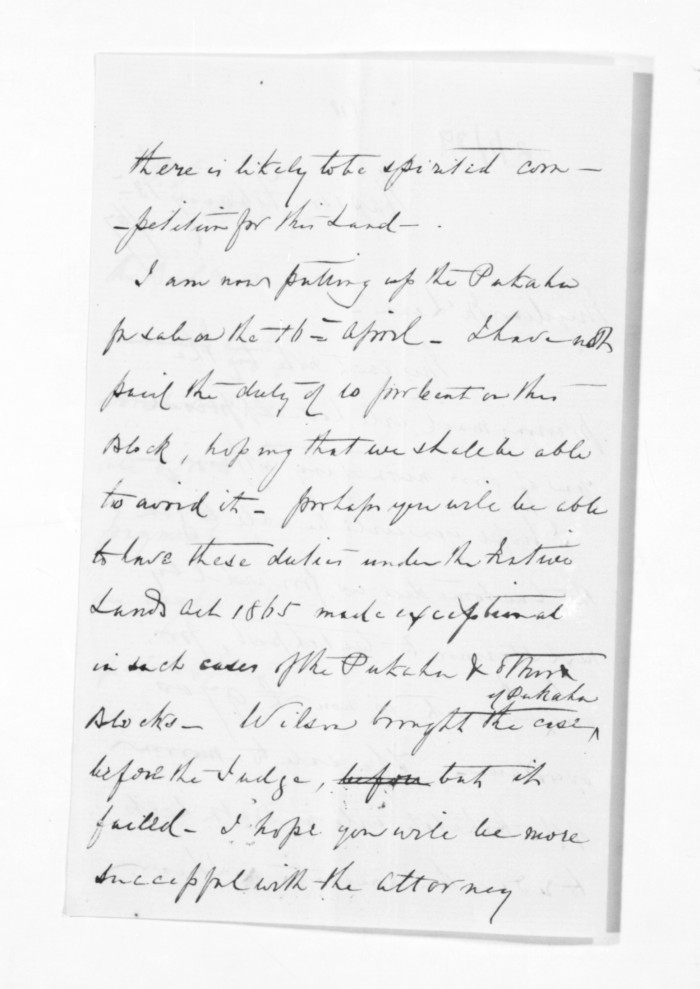 there is likely to be spirited com–
–petition for this Land – .
I am now putting up the Pukahu
for sale on the 16th April – I have not
paid the duty of 10 per cent on this
Block, hoping that we shall be able
to avoid it – perhaps you will be able
to have these duties under the Native
Lands Act 1865 made exceptional
in such cases of the Pukahu &
of Pukahu
Blocks – Wilson brought the case ^
before the Judge, before but it
failed – I hope you will be more
successful with the Attorney